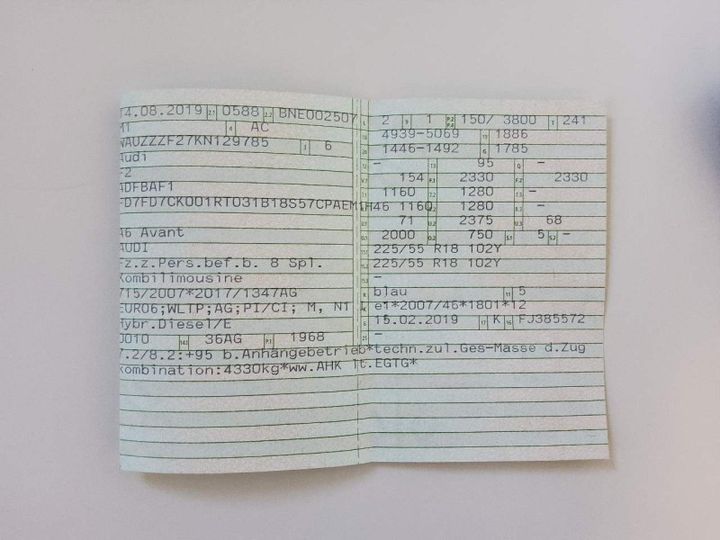 14.08.2019 0588 BNE002507
M1 4 AC
WAUZZZF27KN129785 3 6
Audi
F2
ADFBAF1
FD7FD7CK001RT031B18S57CPAEM1H46
A6 Avant
AUDI
Fz.z.Pers.bef.b. 8 Spl.
Kombilimousine
715/2007*2017/1347AG
EURO6;WLTP;AG;PI/CI; M, N1
Hybr.Diesel/E
0010 36AG 1968
7.2/8.2:+95 b.Anhängebetrieb*techn.zul.Ges-Masse d.Zug
kombination:4330kg*ww.AHK lt.EGTG*
L 2 9 1 150/ 3800 T 241
18 4939-5069 19 1886
20 1446-1492 G 1785
- 95 Q -
154 2330 2330
1160 1280 -
1160 1280 -
71 2375 68
2000 750 S.1 5 S.2 -
225/55 R18 102Y
225/55 R18 102Y
-
blau 11 5
e1*2007/46*1801*12
15.02.2019 17 K 16 FJ385572
-